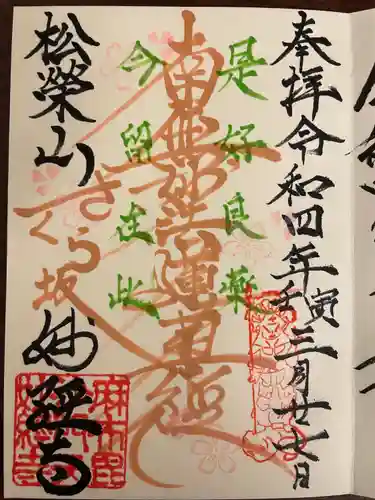 奉拝 令和四年壬寅三月廿七日
是好良薬
南無妙法蓮華経
今留在此
さくら坂
松榮山
妙経寺